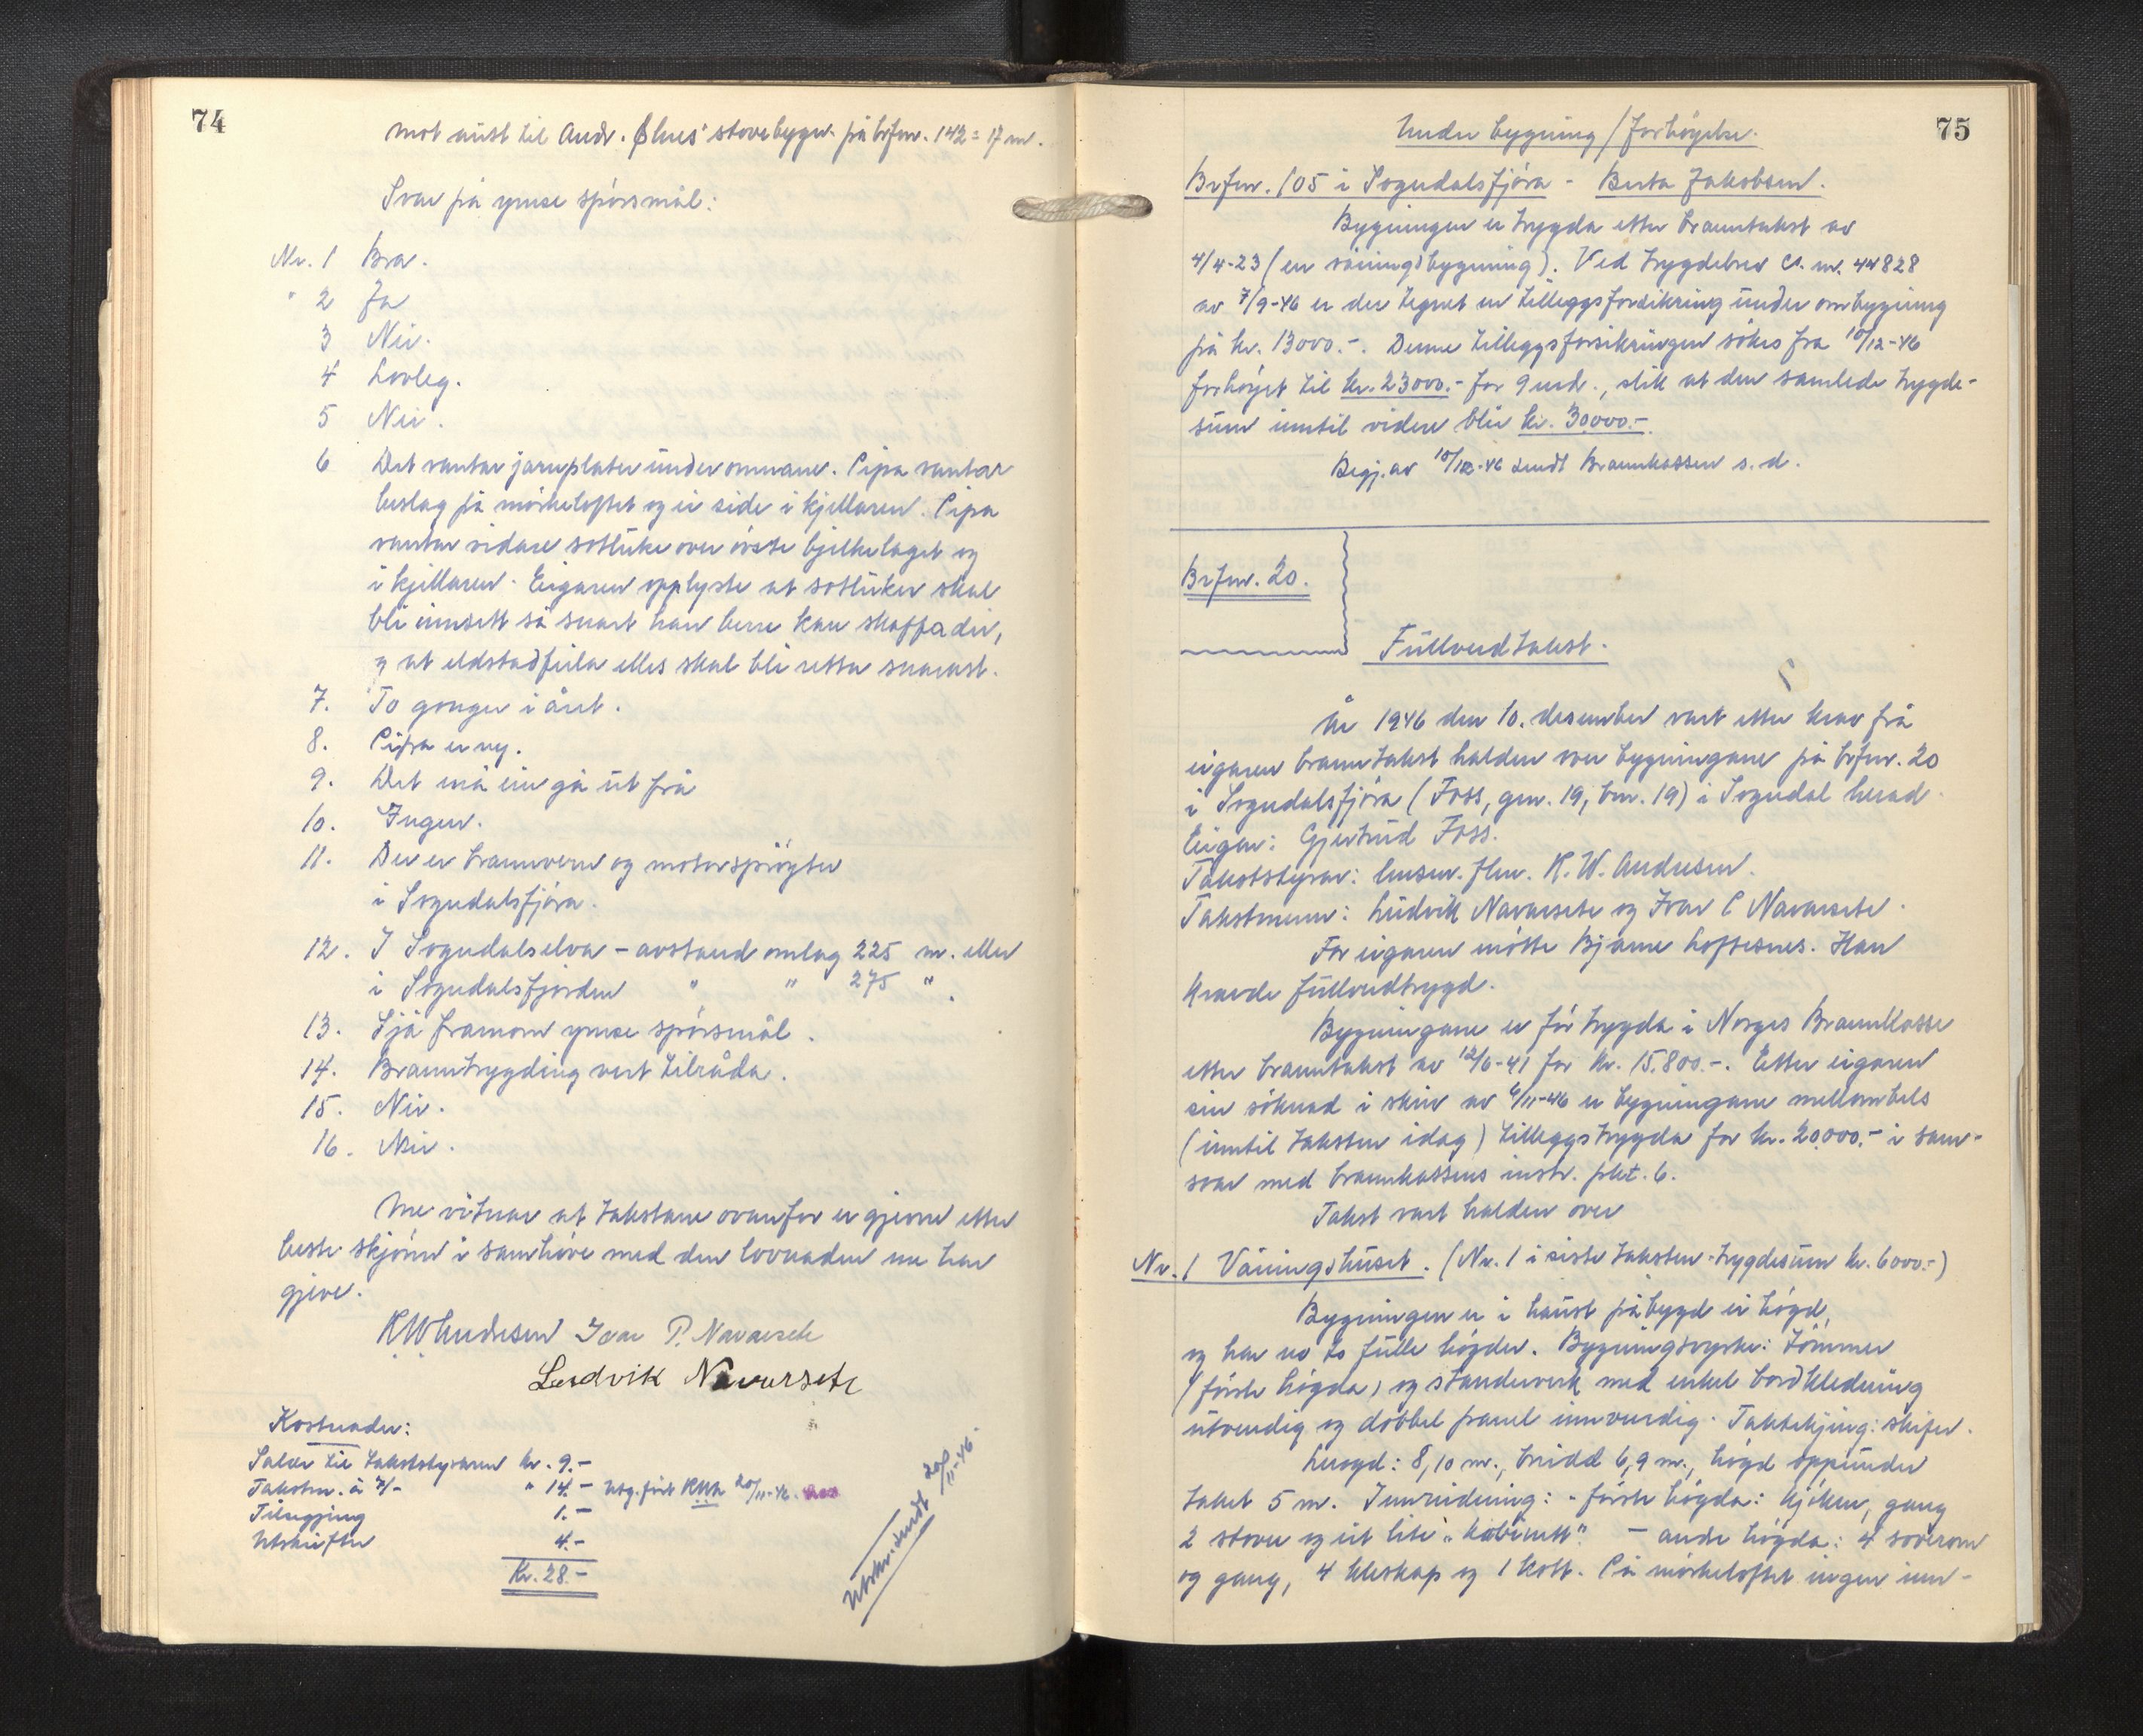 74
mot aust til Andr. Ølnes' stovebygn. på brfnr. 142 = 17 m.
Svar på ymse spörsmål:
Nr. 1 Bra.
" 2 Ja
3 Nei.
4 Lovleg.
5 Nei.
6 Det vantar jarnplater under omnane. Pipa vantar
beslag på mörkeloftet og ei side i kjellaren. Pipa
vantar vidare sotluke over övste bjelkelaget og
i kjellaren. Eigaren opplyste at sotluker skal
bli innsett så snart han berre kan skaffa dei,
og at eldstadfeila elles skal bli retta snarast.
7. To gonger i året.
8. Pipa er ny.
9. Det må ein gå ut frå
10. Ingen.
11. Der er brannvern og motorspröyter
i Sogndalsfjöra.
12. I Sogndalselva - avstand omlag 225 m. eller
i Sogndalsfjorden " " 275 ".
13. Sjå framom ymse spörsmål.
14. Branntrygding vert tilråda.
15. Nei.
16. Nei.
Me vitnar at takstane ovanfor er gjevne etter
beste skjönn i samhöve med den lovnaden me har
gjeve.
K W Andresen Ivar P. Navarsete
Ludvik Navarsete
Kostnader:
Salær til takststyraren kr. 9.-
Takstm. à 7/- " 14.- utg. fört KWA 20/11-46.
Tilseging 1.-
Utskrifter 4.-
Kr. 28.-
Utskr. sendt 20/11-46.
75
Under bygning / forhöyelse.
Brfnr. 105 i Sogndalsfjöra - Berta Jakobsen.
Bygningen er trygda etter branntakst av
4/4-23 (en våningsbygning). Ved trygdebrev C. nr. 44828
av 7/9-46 er der tegnet en tilleggsforsikring under ombygning
på kr. 13000.-. Denne tilleggsforsikringen sökes fra 10/12-46
forhöyet til kr. 23000.- for 9 mdr., slik at den samlede trygde-
sum inntil videre blir kr. 30000.-
Begj. av 10/12-46 sendt Brannkassen s.d.
Brfnr. 20.
Fullverdtakst.
År 1946 den 10. desember vart etter krav frå
eigaren branntakst halden over bygningane på brfnr. 20
i Sogndalsfjöra (Foss, gnr. 19, bnr. 19) i Sogndal herad.
Eigar: Gjertrud Foss.
Takststyrar: lensm. flm. K. W. Andresen.
Takstmenn: Ludvik Navarsete og Ivar P Navarsete.
For eigaren mötte Bjarne Loftesnes. Han
kravde fullverdtrygd.
Bygningane er för trygda i Norges Brannkasse
etter branntakst av 12/6-41 for kr. 15.800.-. Etter eigaren
sin söknad i skriv av 6/11-46 er bygningane mellombels
(inntil taksten idag) tilleggstrygda for kr. 20.000.- i sam-
svar med brannkassens instr. pkt. 6.
Takst vart halden over
Nr. 1 Våningshuset. (Nr. 1 i siste taksten - trygdesum kr. 6000.-)
Bygningen er i haust påbygd ei högd,
og har no to fulle högder. Bygningsvyrke: Tömmer
(förste högda) og standerverk med enkel bordkledning
utvendig og dobbel panel innvendig. Taktekjing: skifer.
Lengd: 8,10 m., breidd 6,9 m., högd oppunder
taket 5 m. Innreidning: - förste högda: kjöken, gang
2 stover og eit lite "kabinett". - andre högda: 4 soverom
og gang, 4 kleskap og 1 kott. På mörkeloftet ingen inn-